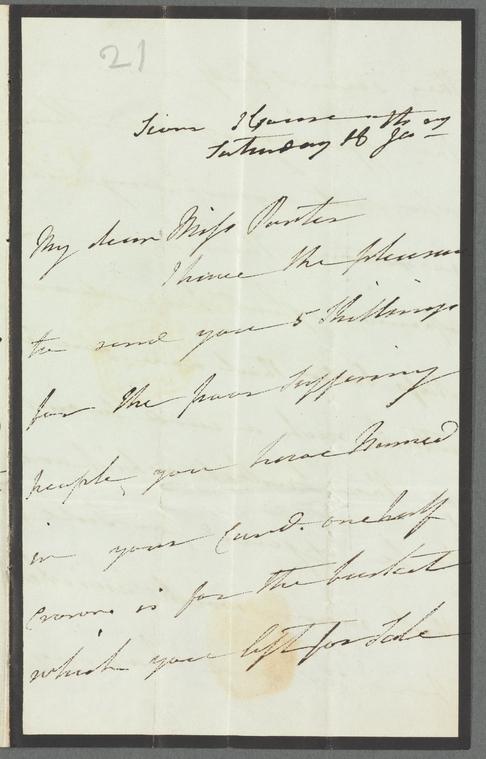 21
Sion House
Saturday 18 Ja
My dear Miss Porter
I have the pleasure
to send you 5 Shillings
for the poor suffering
people, you have Named
in your Card. one half
Crown is for the basket
which you left for Sale